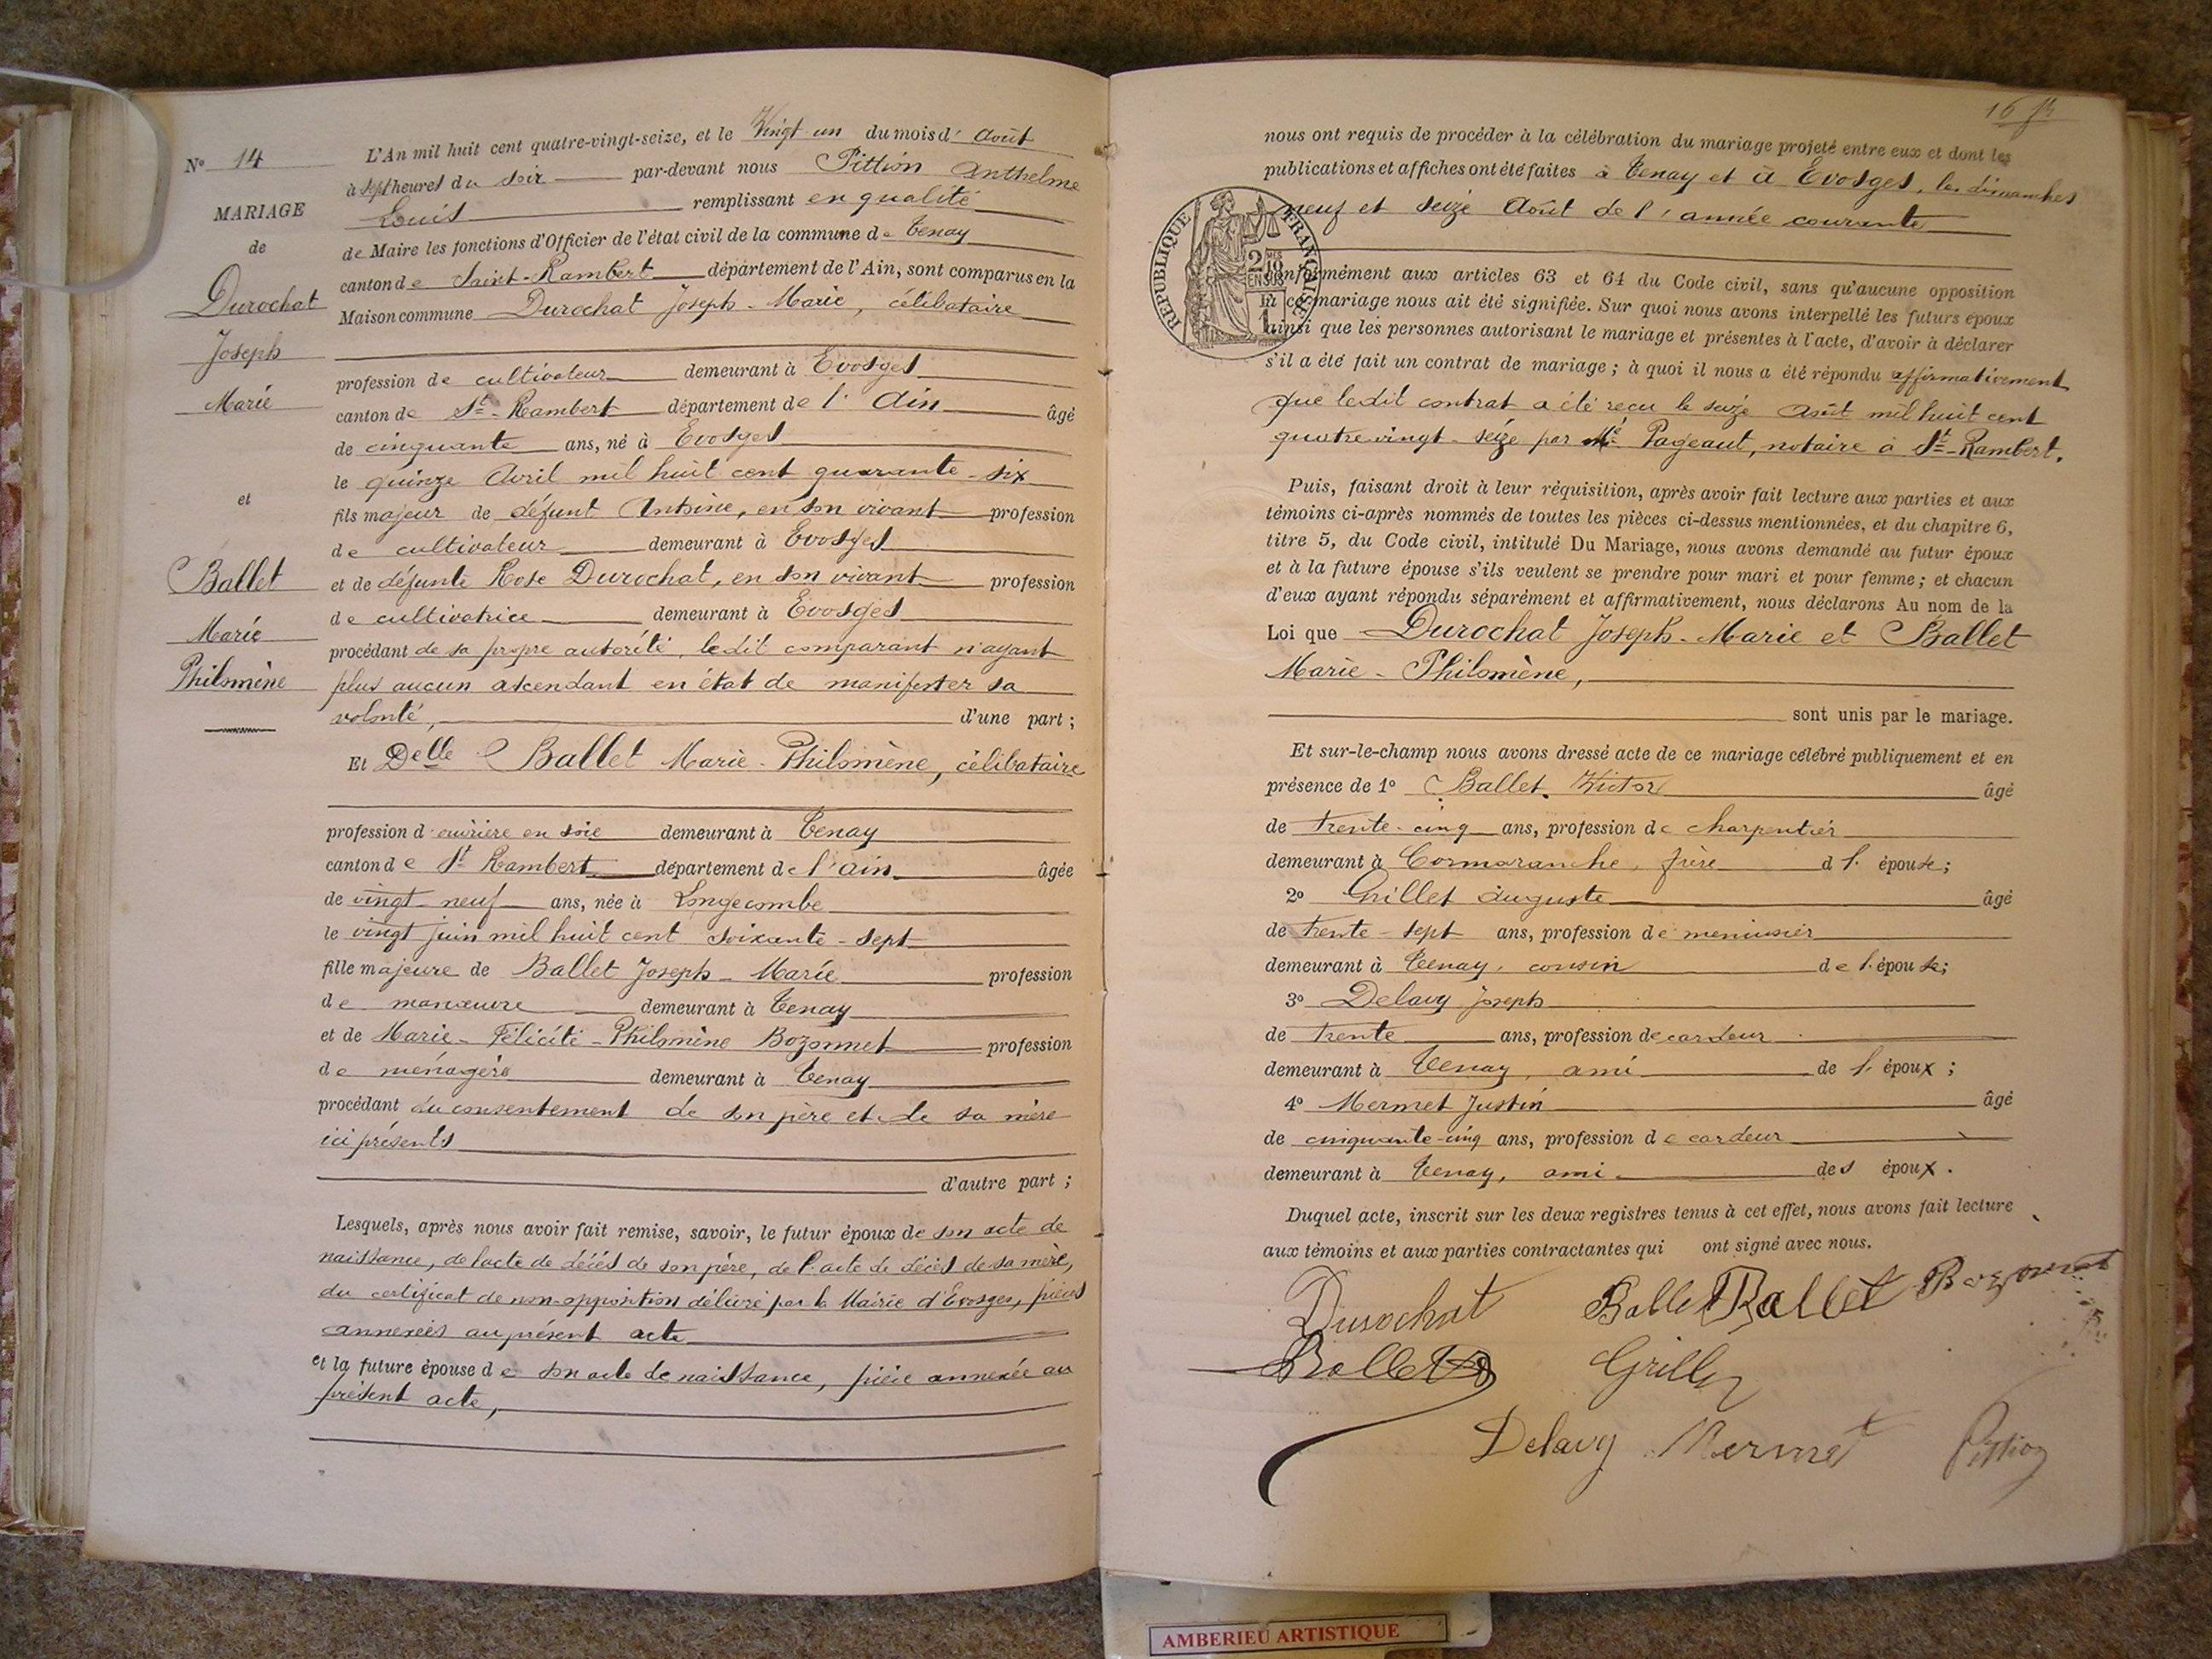 N° 14
MARIAGE
de
Durochat
Joseph
Marie
et
Ballet
Marie
Philomène
L'An mil huit cent quatre-vingt-seize, et le Vingt un du mois d'Août
à sept heures du soir par-devant nous Pittion Anthelme
Louis remplissant en qualité
de Maire les fonctions d'Officier de l'état civil de la commune de Tenay
canton de Saint-Rambert département de l'Ain, sont comparus en la
Maison commune Durochat Joseph-Marie, célibataire
profession de cultivateur demeurant à Evosges
canton de St-Rambert département de l'Ain âgé
de cinquante ans, né à Evosges
le quinze Avril mil huit cent quarante-six
fils majeur de défunt Antoine, en son vivant profession
de cultivateur demeurant à Evosges
et de défunte Rose Durochat, en son vivant profession
de cultivatrice demeurant à Evosges
procédant de sa propre autorité, ledit comparant n'ayant
plus aucun ascendant en état de manifester sa
volonté, d'une part ;
Et Delle Ballet Marie-Philomène, célibataire
profession d'ouvrière en soie demeurant à Tenay
canton de St Rambert département de l'ain âgée
de vingt-neuf ans, née à Longecombe
le vingt juin mil huit cent soixante-sept
fille majeure de Ballet Joseph-Marie profession
de manœuvre demeurant à Tenay
et de Marie-Félicité-Philomène Bozonnet profession
de ménagère demeurant à Tenay
procédant du consentement de son père et de sa mère
ici présents
d'autre part ;
Lesquels, après nous avoir fait remise, savoir, le futur époux de son acte de
naissance, de l'acte de décès de son père, de l'acte de décès de sa mère,
du certificat de non-opposition délivré par la Mairie d'Evosges, pièces
annexées au présent acte
et la future épouse de son acte de naissance, pièce annexée au
présent acte,
16
nous ont requis de procéder à la célébration du mariage projeté entre eux et dont les
publications et affiches ont été faites à Tenay et à Evosges, les dimanches
neuf et seize Août de l'année courante
REPUBLIQUE FRANÇAISE
2 10 EN SUS
conformément aux articles 63 et 64 du Code civil, sans qu'aucune opposition
à ce mariage nous ait été signifiée. Sur quoi nous avons interpellé les futurs époux
ainsi que les personnes autorisant le mariage et présentes à l'acte, d'avoir à déclarer
s'il a été fait un contrat de mariage ; à quoi il nous a été répondu affirmativement
que ledit contrat a été reçu le seize Août mil huit cent
quatre vingt-seize par Me Pageaut, notaire à St-Rambert.
Puis, faisant droit à leur réquisition, après avoir fait lecture aux parties et aux
témoins ci-après nommés de toutes les pièces ci-dessus mentionnées, et du chapitre 6,
titre 5, du Code civil, intitulé Du Mariage, nous avons demandé au futur époux
et à la future épouse s'ils veulent se prendre pour mari et pour femme ; et chacun
d'eux ayant répondu séparément et affirmativement, nous déclarons Au nom de la
Loi que Durochat Joseph-Marie et Ballet
Marie-Philomène,
sont unis par le mariage.
Et sur-le-champ nous avons dressé acte de ce mariage célébré publiquement et en
présence de 1° Ballet Victor âgé
de trente-cinq ans, profession de charpentier
demeurant à Cormaranche, frère d l' épouse ;
2° Grillet Auguste âgé
de trente-sept ans, profession de menuisier
demeurant à Tenay, cousin de l'épouse ;
3° Delavy Joseph
de trente ans, profession de cardeur
demeurant à Tenay, ami de l' époux ;
4° Mermet Justin âgé
de cinquante-cinq ans, profession de cardeur
demeurant à Tenay, ami des époux.
Duquel acte, inscrit sur les deux registres tenus à cet effet, nous avons fait lecture
aux témoins et aux parties contractantes qui ont signé avec nous.
Durochat Ballet Ballet Bozonnet
Ballet Grillet
Delavy Mermet Pittion
AMBERIEU ARTISTIQUE